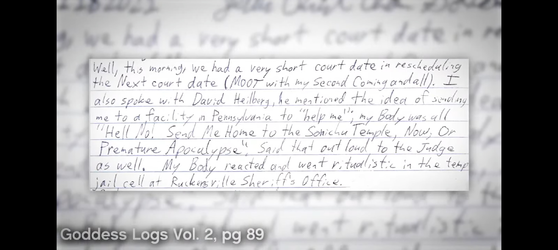 Well, this morning, we had a very short court date in rescheduling
the Next court date (MOOT with my Second Coming and all). I
also spoke with David Heilberg, he mentioned the idea of sending
me to a facility in Pennsylvania to "help me"; my Body was all
"Hell No! Send Me Home to the Sonichu Temple, Now, Or
Premature Apocalypse". Said that out loud to the Judge
as well. My Body reacted and went ritualistic in the temp
jail cell at Ruckersville Sheriff's Office.
Goddess Logs Vol. 2, pg 89